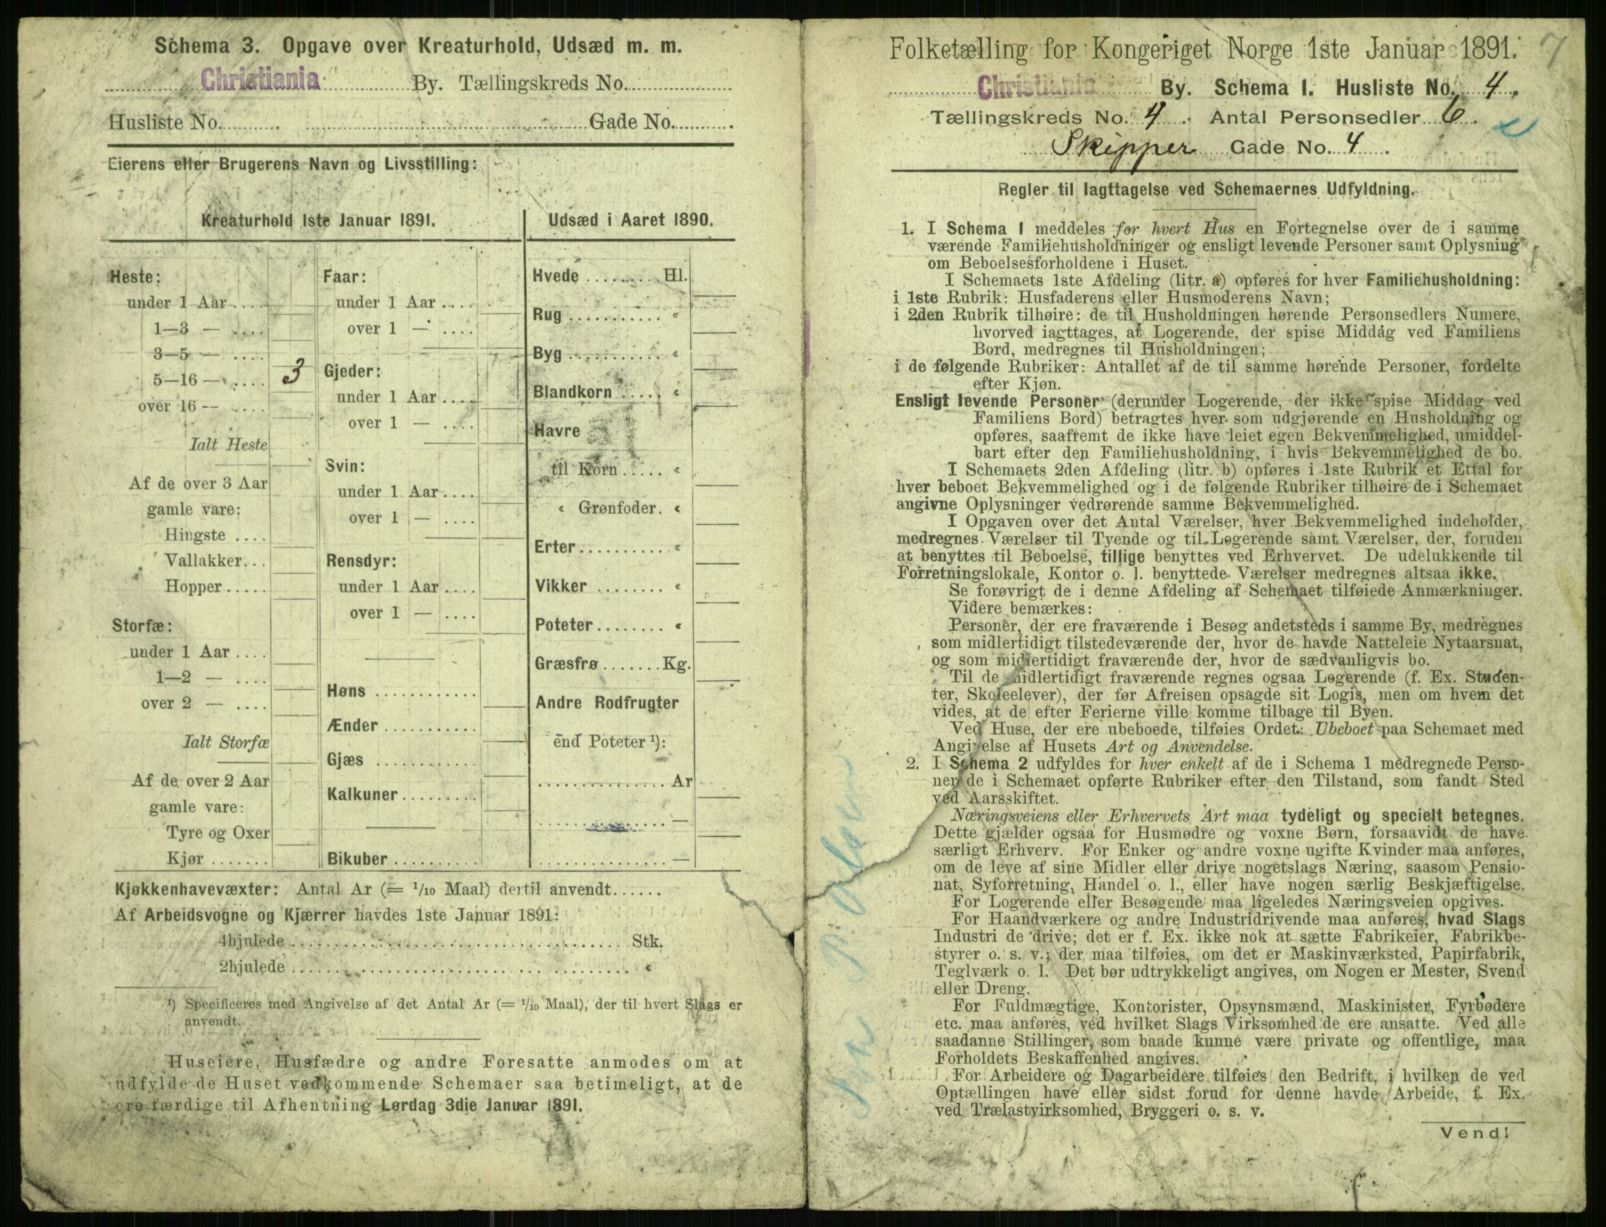 Schema 3. Opgave over Kreaturhold, Udsæd m. m.
Christiania By. Tællingskreds No.
Husliste No. Gade No.
Eierens eller Brugerens Navn og Livsstilling:
Kreaturhold 1ste Januar 1891.
Heste:
under 1 Aar
1—3 —
3—5 —
5—16 — 3
over 16 —
Ialt Heste
Af de over 3 Aar
gamle vare:
Hingste
Vallakker
Hopper
Storfæ:
under 1 Aar
1—2 —
over 2 —
Ialt Storfæ
Af de over 2 Aar
gamle vare:
Tyre og Oxer
Kjør
Faar:
under 1 Aar
over 1 —
Gjeder:
under 1 Aar
over 1 —
Svin:
under 1 Aar
over 1 —
Rensdyr:
under 1 Aar
over 1 —
Høns
Ænder
Gjæs
Kalkuner
Bikuber
Udsæd i Aaret 1890.
Hvede Hl.
Rug «
Byg «
Blandkorn «
Havre
til Korn «
« Grønfoder. «
Erter «
Vikker «
Poteter «
Græsfrø Kg.
Andre Rodfrugter
end Poteter ¹):
Ar
—
—
Kjøkkenhavevæxter: Antal Ar (= 1/10 Maal) dertil anvendt
Af Arbeidsvogne og Kjærrer havdes 1ste Januar 1891:
4hjulede Stk.
2hjulede «
¹) Specificeres med Angivelse af det Antal Ar (= 1/10 Maal), der til hvert Slags er
anvendt.
Huseiere, Husfædre og andre Foresatte anmodes om at
udfylde de Huset vedkommende Schemaer saa betimeligt, at de
ere færdige til Afhentning Lørdag 3die Januar 1891.
Folketælling for Kongeriget Norge 1ste Januar 1891. 7
Christiania By. Schema I. Husliste No. 4.
Tællingskreds No. 4. Antal Personsedler 6.
Skipper Gade No. 4.
Regler til Iagttagelse ved Schemaernes Udfyldning.
1. I Schema I meddeles for hvert Hus en Fortegnelse over de i samme
værende Familiehusholdninger og ensligt levende Personer samt Oplysning
om Beboelsesforholdene i Huset.
I Schemaets 1ste Afdeling (litr. a) opføres for hver Familiehusholdning:
i 1ste Rubrik: Husfaderens eller Husmoderens Navn;
i 2den Rubrik tilhøire: de til Husholdningen hørende Personsedlers Numere,
hvorved iagttages, at Logerende, der spise Middag ved Familiens
Bord, medregnes til Husholdningen;
i de følgende Rubriker: Antallet af de til samme hørende Personer, fordelte
efter Kjøn.
Ensligt levende Personer (derunder Logerende, der ikke spise Middag ved
Familiens Bord) betragtes hver som udgjørende en Husholdning og
opføres, saafremt de ikke have leiet egen Bekvemmelighed, umiddel-
bart efter den Familiehusholdning, i hvis Bekvemmelighed de bo.
I Schemaets 2den Afdeling (litr. b) opføres i 1ste Rubrik et Ettal for
hver beboet Bekvemmelighed og i de følgende Rubriker tilhøire de i Schemaet
angivne Oplysninger vedrørende samme Bekvemmelighed.
I Opgaven over det Antal Værelser, hver Bekvemmelighed indeholder,
medregnes Værelser til Tyende og til Logerende samt Værelser, der, foruden
at benyttes til Beboelse, tillige benyttes ved Erhvervet. De udelukkende til
Forretningslokale, Kontor o. l. benyttede Værelser medregnes altsaa ikke.
Se forøvrigt de i denne Afdeling af Schemaet tilføiede Anmærkninger.
Videre bemærkes:
Personer, der ere fraværende i Besøg andetsteds i samme By, medregnes
som midlertidigt tilstedeværende der, hvor de havde Natteleie Nytaarsnat,
og som midlertidigt fraværende der, hvor de sædvanligvis bo.
Til de midlertidigt fraværende regnes ogsaa Logerende (f. Ex. Studen-
ter, Skoleelever), der før Afreisen opsagde sit Logis, men om hvem det
vides, at de efter Ferierne ville komme tilbage til Byen.
Ved Huse, der ere ubeboede, tilføies Ordet: Ubeboet paa Schemaet med
Angivelse af Husets Art og Anvendelse.
2. I Schema 2 udfyldes for hver enkelt af de i Schema 1 medregnede Perso-
ner de i Schemaet opførte Rubriker efter den Tilstand, som fandt Sted
ved Aarsskiftet.
Næringsveiens eller Erhvervets Art maa tydeligt og specielt betegnes.
Dette gjælder ogsaa for Husmødre og voxne Børn, forsaavidt de have
særligt Erhverv. For Enker og andre voxne ugifte Kvinder maa anføres,
om de leve af sine Midler eller drive nogetslags Næring, saasom Pensio-
nat, Syforretning, Handel o. l., eller have nogen særlig Beskjæftigelse.
For Logerende eller Besøgende maa ligeledes Næringsveien opgives.
For Haandværkere og andre Industridrivende maa anføres, hvad Slags
Industri de drive; det er f. Ex. ikke nok at sætte Fabrikeier, Fabrikbe-
styrer o. s. v.; der maa tilføies, om det er Maskinværksted, Papirfabrik,
Teglværk o. l. Det bør udtrykkeligt angives, om Nogen er Mester, Svend
eller Dreng.
For Fuldmægtige, Kontorister, Opsynsmænd, Maskinister, Fyrbødere
etc. maa anføres, ved hvilket Slags Virksomhed de ere ansatte. Ved alle
saadanne Stillinger, som baade kunne være private og offentlige, maa
Forholdets Beskaffenhed angives.
For Arbeidere og Dagarbeidere tilføies den Bedrift, i hvilken de ved
Optællingen have eller sidst forud for denne havde Arbeide, f. Ex.
ved Trælastvirksomhed, Bryggeri o. s. v.
Vend!